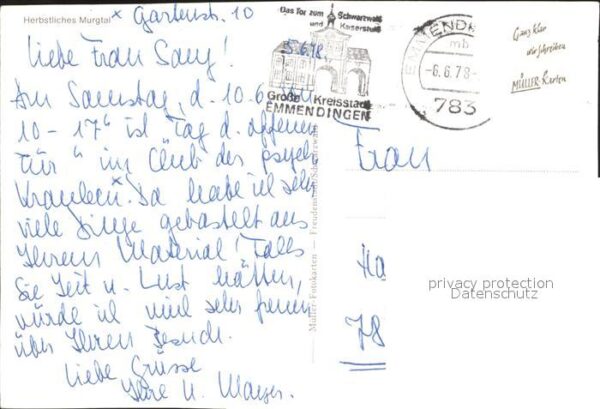 Herbstliches Murgtal
x Gartenstr. 10
5.6.78
Liebe Frau Sany!
Am Samstag, d. 10.6. v.
10 - 17ʰ ist „Tag d. offenen
Tür" im Club der psych.
Kranken.x Da habe ich sehr
viele Dinge gebastelt aus
Ihrem Material! Falls
Sie Zeit u. Lust hätten,
würde ich mich sehr freuen
über Ihren Besuch.
Liebe Grüsse
Ihre U. Mayer.
Das Tor zum Schwarzwald
und Kaiserstuhl
Große Kreisstadt
EMMENDINGEN
EMMENDINGEN
mb
-6.6.78-
783
Ganz klar
wir schreiben
MÜLLER Karten
Müller-Fotokarten — Freudenstadt/Schwarzwald
Frau
Ha
78
privacy protection
Datenschutz